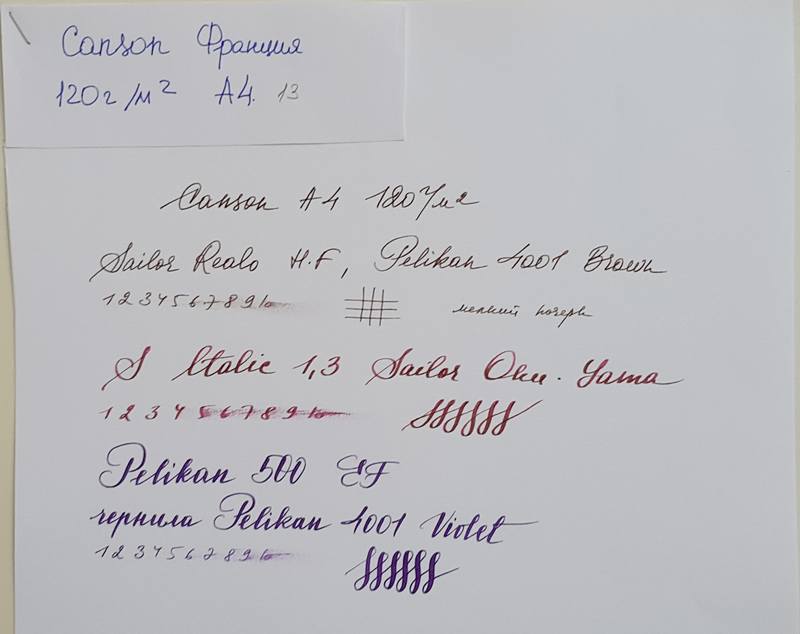 Canson Франция
120г/м² А4. 13
Canson A4 120г/м²
Sailor Realo H.F, Pelikan 4001 Brown
1 2 3 4 5 6 7 8 9 10
мелкий почерк
S Italic 1,3 Sailor Oku-Yama
1 2 3 4 5 6 7 8 9 10
Pelikan 500 EF
чернила Pelikan 4001 Violet
1 2 3 4 5 6 7 8 9 10